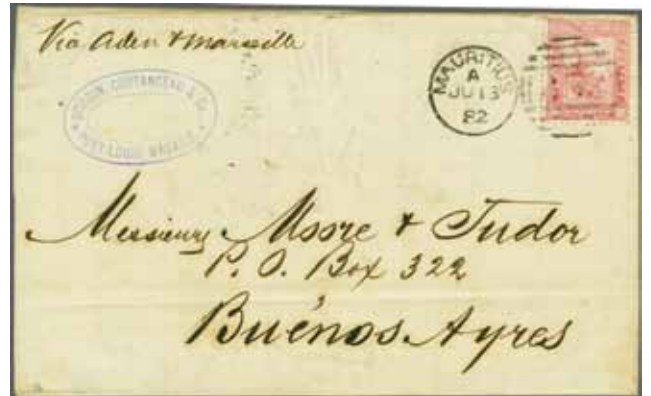 Via Aden & Marseille
COUTANCEAU & Co
PORT LOUIS
MAURITIUS
A
JU 13
82
Messieurs Moore & Tudor
P. O. Box 322
Buénos Ayres